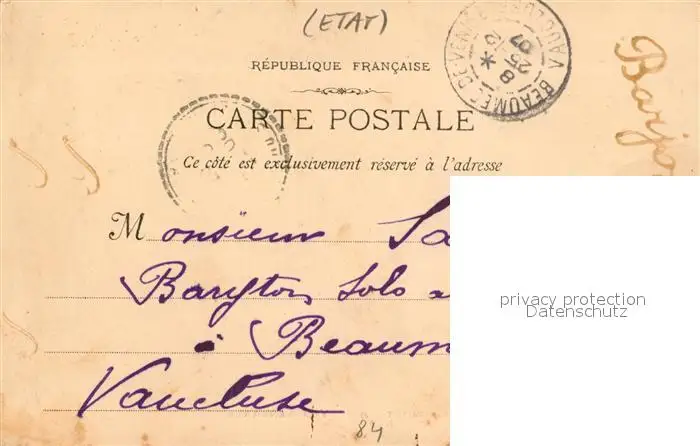 (ETAT)
RÉPUBLIQUE FRANÇAISE
CARTE POSTALE
Ce côté est exclusivement réservé à l'adresse
Monsieur Sa
Barytons Solo
à Beaum
Vaucluse
84
BEAUMES DE VENISE VAUCLUSE
8
25
07
privacy protection
Datenschutz